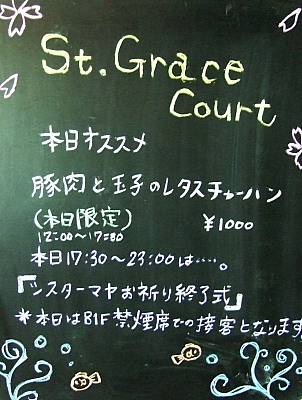 St. Grace
Court
本日オススメ
豚肉と玉子のレタスチャーハン
(本日限定) ¥1000
12:00~17:30
本日17:30~23:00は…。
『シスターマヤお祈り終了式』
*本日はB1F禁煙席での接客となります